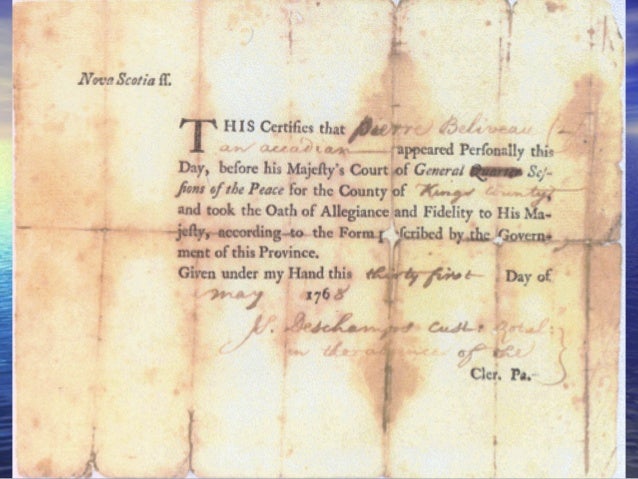 Nova Scotia ſſ.
THIS Certifies that Pierre Beliveau
an accadian appeared Perſonally this
Day, before his Majeſty's Court of General Quarter Seſ-
ſions of the Peace for the County of Kings County,
and took the Oath of Allegiance and Fidelity to His Ma-
jeſty, according to the Form p ſcribed by the Govern-
ment of this Province.
Given under my Hand this thirty first Day of
may 1768
J. Deschamps Cust: Rotul:
in the absence of the
Cler. Pa.